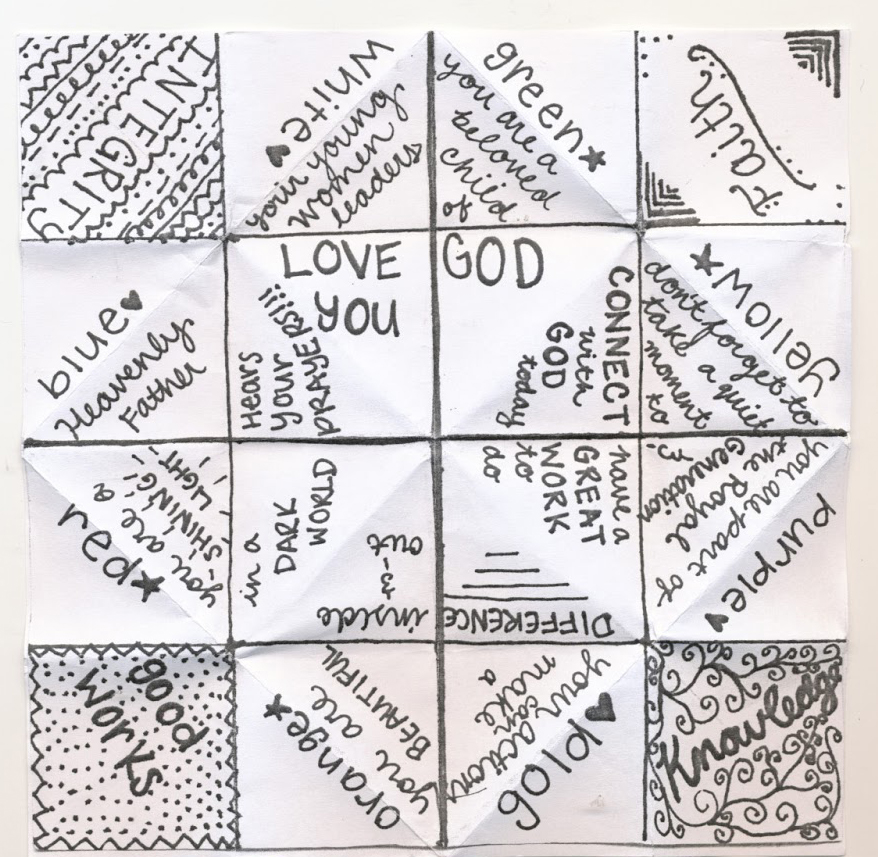 INTEGRITY
White
your young
women
leaders
green
you are a
beloved
child
of
Faith
blue
Heavenly
Father
LOVE
YOU
Hears
your
PRAYERS!!!!
GOD
CONNECT
with
GOD
today
yellow
don't forget to
take a quiet
moment
to
red
you are a
-SHINING-
LIGHT
in a
DARK
WORLD
inside
-n-
out
have a
GREAT
WORK
to
do
DIFFERENCE
you are part of
the Royal
Generation
purple
good
works
orange
you are
BEAUTIFUL
your actions
can
make
a
gold
Knowledge